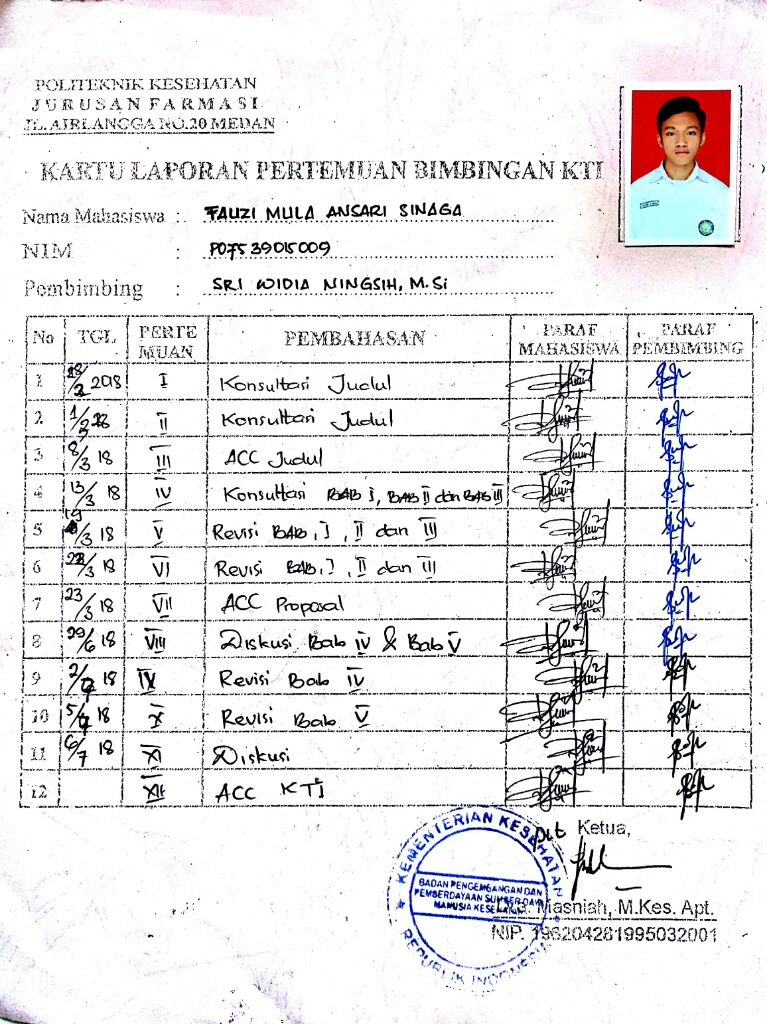 POLITEKNIK KESEHATAN
JURUSAN FARMASI
JL. AIRLANGGA NO.20 MEDAN
KARTU LAPORAN PERTEMUAN BIMBINGAN KTI
Nama Mahasiswa : FAUZI MULA ANSARI SINAGA
NIM : P07539015009
Pembimbing : SRI WIDIA NINGSIH, M.Si
No TGL PERTEMUAN PEMBAHASAN PARAF MAHASISWA PARAF PEMBIMBING
1 2018 I Konsultasi Judul
2 II Konsultasi Judul
3 8/3 18 III ACC Judul
4 13/3 18 IV Konsultasi BAB I, BAB II dan BAB III
5 19/3 18 V Revisi BAB, I, II dan III
6 18 VI Revisi BAB, I, II dan III
7 23/3 18 VII ACC Proposal
8 29/6 18 VIII Diskusi Bab IV & Bab V
9 2/7 18 IX Revisi Bab IV
10 5/7 18 X Revisi Bab V
11 6/7 18 XI Diskusi
12 XII ACC KTI
Plt Ketua,
KEMENTERIAN KESEHATAN
BADAN PENGEMBANGAN DAN
PEMBERDAYAAN SUMBER DAYA
MANUSIA KESEHATAN
REPUBLIK INDONESIA
Masniah, M.Kes. Apt.
NIP. 196204281995032001